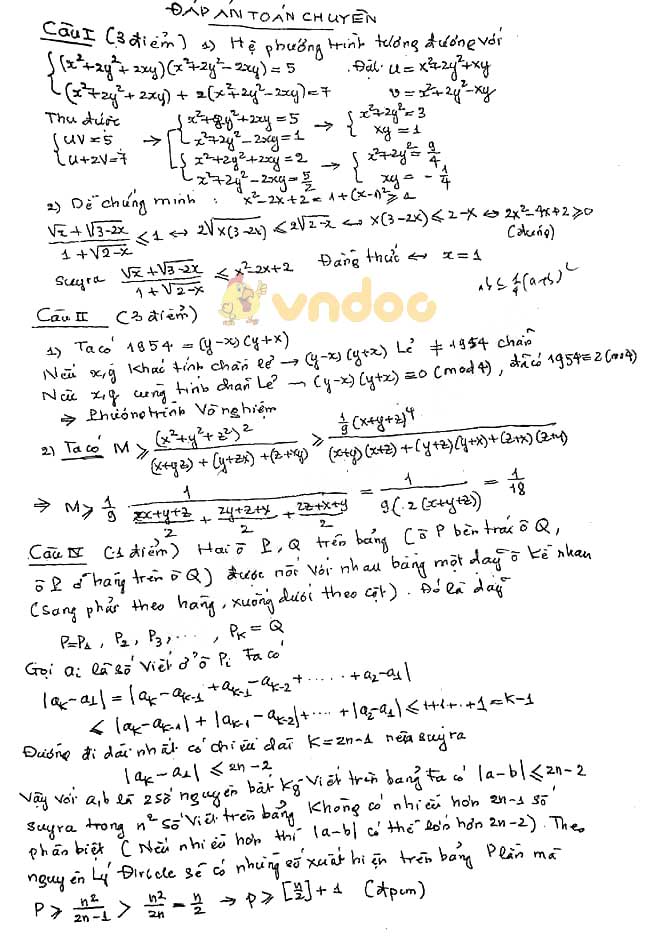 ĐÁP ÁN TOÁN CHUYÊN
Câu I (3 điểm) 1) Hệ phương trình tương đương với
{ (x²+2y²+2xy)(x²+2y²-2xy) = 5 . Đặt u = x²+2y²+xy
(x²+2y²+2xy) + 2(x²+2y²-2xy) = 7 v = x²+2y²-xy
Thu được
{ uv = 5 u+2v = 7 → [ { x²+2y²+2xy = 5 x²+2y²-2xy = 1 → { x²+2y² = 3 xy = 1
{ x²+2y²+2xy = 2 x²+2y²-2xy = 5/2 → { x²+2y² = 9/4 xy = -1/4
2) Dễ chứng minh : x²-2x+2 = 1+(x-1)² ≥ 1
(√x + √(3-2x))/(1+√(2-x)) ≤ 1 ↔ 2√(x(3-2x)) ≤ 2√(2-x) ↔ x(3-2x) ≤ 2-x ↔ 2x²-4x+2 ≥ 0
(đúng)
Suy ra (√x + √(3-2x))/(1+√(2-x)) ≤ x²-2x+2 Đẳng thức ↔ x = 1
ab ≤ 1/4(a+b)²
vndoc
Câu II (3 điểm)
1) Ta có 1954 = (y-x)(y+x)
Nếu x,y khác tính chẵn lẻ → (y-x)(y+x) Lẻ ≠ 1954 chẵn
Nếu x,y cùng tính chẵn lẻ → (y-x)(y+x) ≡ 0 (mod 4), đã có 1954 ≡ 2 (mod 4)
⇒ Phương trình Vô nghiệm
2) Ta có M ≥ (x²+y²+z²)²/((x+yz)+(y+zx)+(z+xy)) ≥ 1/9(x+y+z)⁴/((x+y)(x+z)+(y+z)(y+x)+(z+x)(z+y))
⇒ M ≥ 1/9 · 1/((2x+y+z)/2 + (2y+z+x)/2 + (2z+x+y)/2) = 1/(9(.2(x+y+z))) = 1/18
Câu IV (1 điểm) Hai ô P, Q trên bảng (ô P bên trái ô Q,
ô P ở hàng trên ô Q) được nối với nhau bằng một dãy ô kề nhau
(sang phải theo hàng, xuống dưới theo cột). Đó là dãy
P=P₁, P₂, P₃, ..., P_K = Q
Gọi aᵢ là số viết ở ô Pᵢ Ta có
|a_K - a₁| = |a_K - a_{K-1} + a_{K-1} - a_{K-2} + ..... + a₂ - a₁|
≤ |a_K - a_{K-1}| + |a_{K-1} - a_{K-2}| + .... + |a₂ - a₁| ≤ 1+1+..+1 = K-1
Đường đi dài nhất có chiều dài K = 2n-1 nên suy ra
|a_K - a₁| ≤ 2n-2
Vậy với a,b là 2 số nguyên bất kỳ viết trên bảng ta có |a-b| ≤ 2n-2
suy ra trong n² số viết trên bảng không có nhiều hơn 2n-1 số
phân biệt (Nếu nhiều hơn thì |a-b| có thể lớn hơn 2n-2). Theo
nguyên lý Điricle sẽ có những số xuất hiện trên bảng P lần mà
P ≥ n²/(2n-1) > n²/2n = n/2 → P ≥ [n/2] + 1 (đpcm)